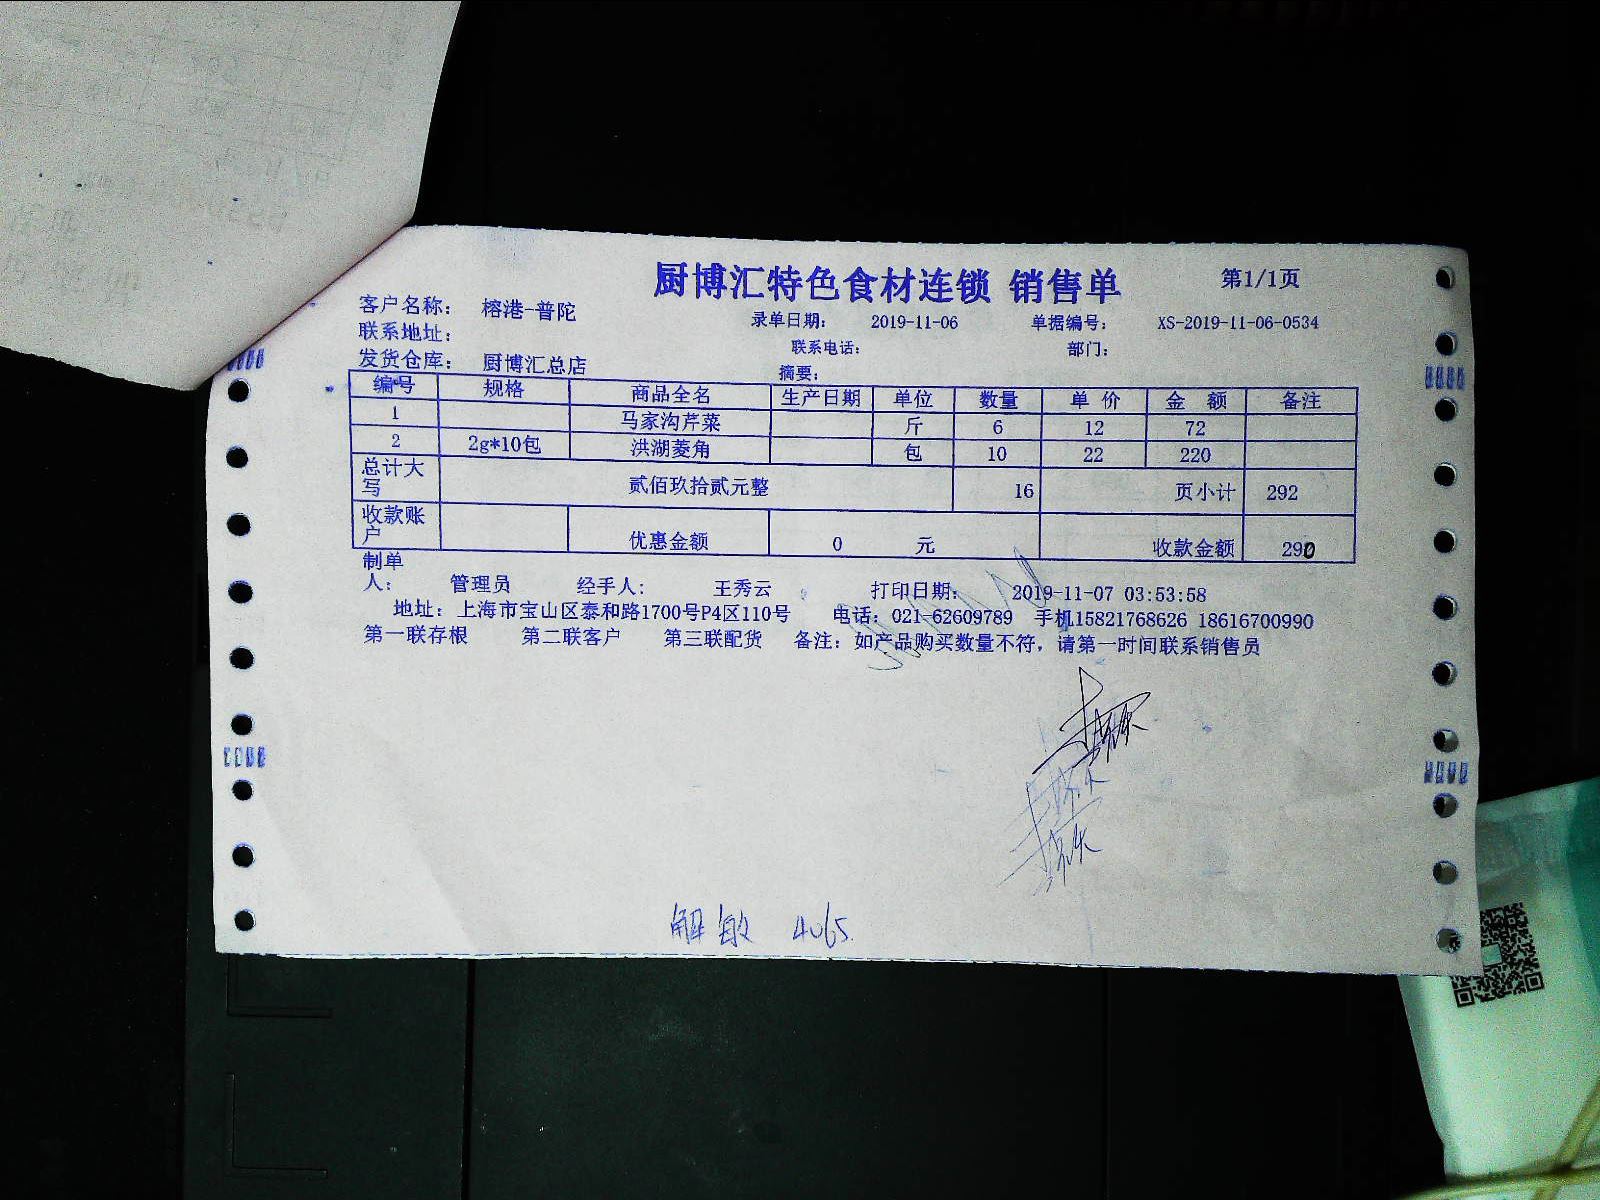 厨博汇特色食材连锁 销售单 第1/1页
客户名称： 榕港-普陀
录单日期： 2019-11-06 单据编号： XS-2019-11-06-0534
联系地址： 联系电话： 部门：
发货仓库： 厨博汇总店 摘要：
编号 规格 商品全名 生产日期 单位 数量 单 价 金 额 备注
1 马家沟芹菜 斤 6 12 72
2 2g*10包 洪湖菱角 包 10 22 220
总计大写 贰佰玖拾贰元整 16 页小计 292
收款账户 优惠金额 0 元 收款金额 290
制单人： 管理员 经手人： 王秀云 打印日期： 2019-11-07 03:53:58
地址：上海市宝山区泰和路1700号P4区110号 电话：021-62609789 手机15821768626 18616700990
第一联存根 第二联客户 第三联配货 备注：如产品购买数量不符，请第一时间联系销售员
解敏 4065